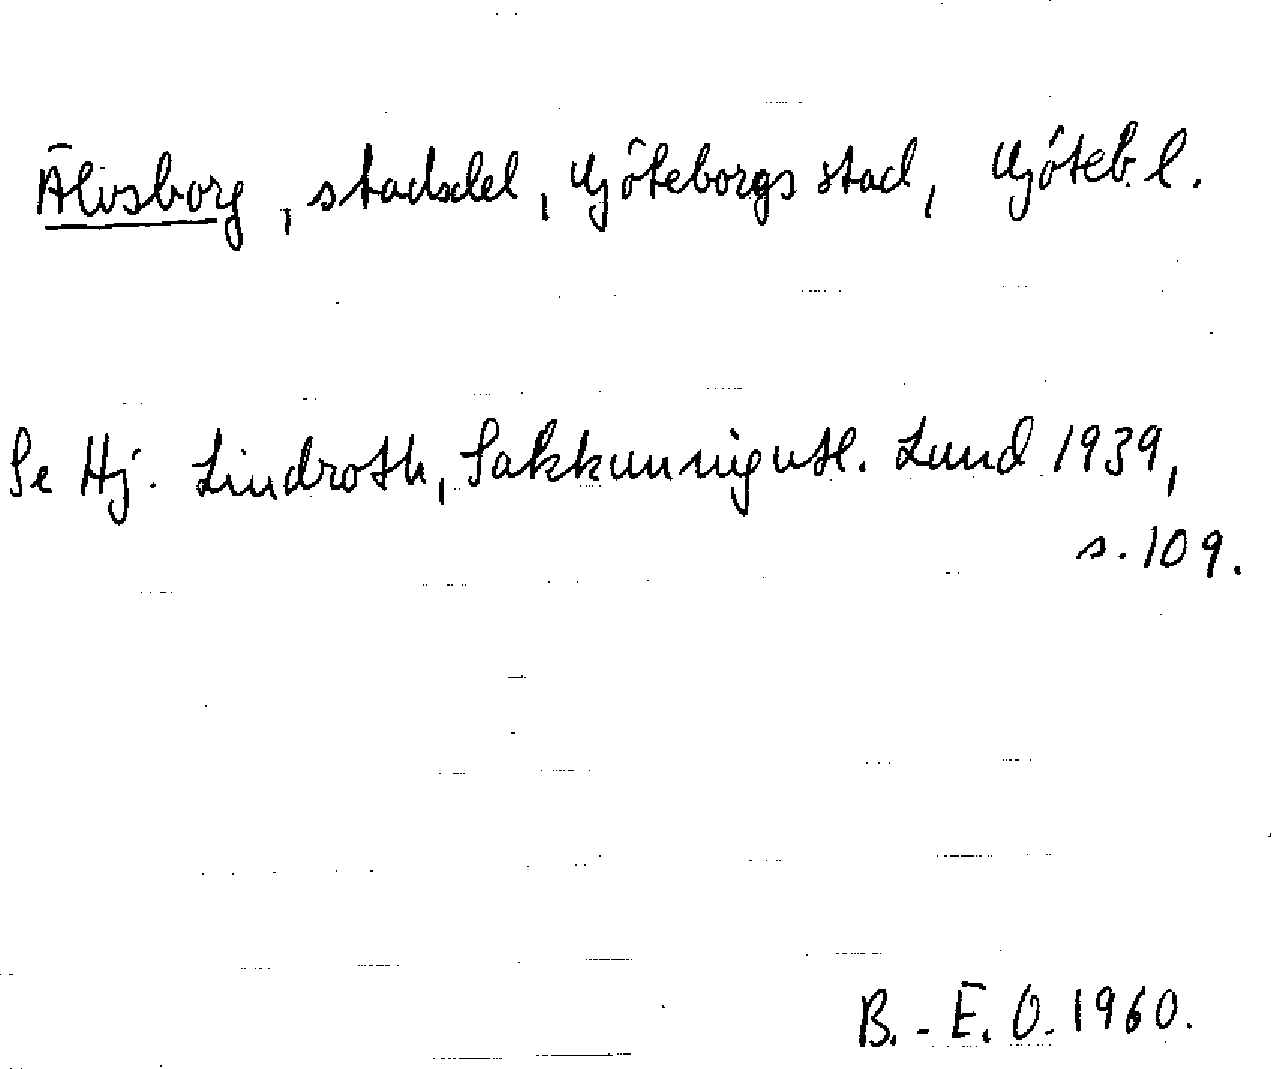 Älvsborg, stadsdel, Göteborgs stad, Göteb. l.
Se Hj. Lindroth, Sakkunnigutl. Lund 1939,
s. 109.
B.-E. O. 1960.